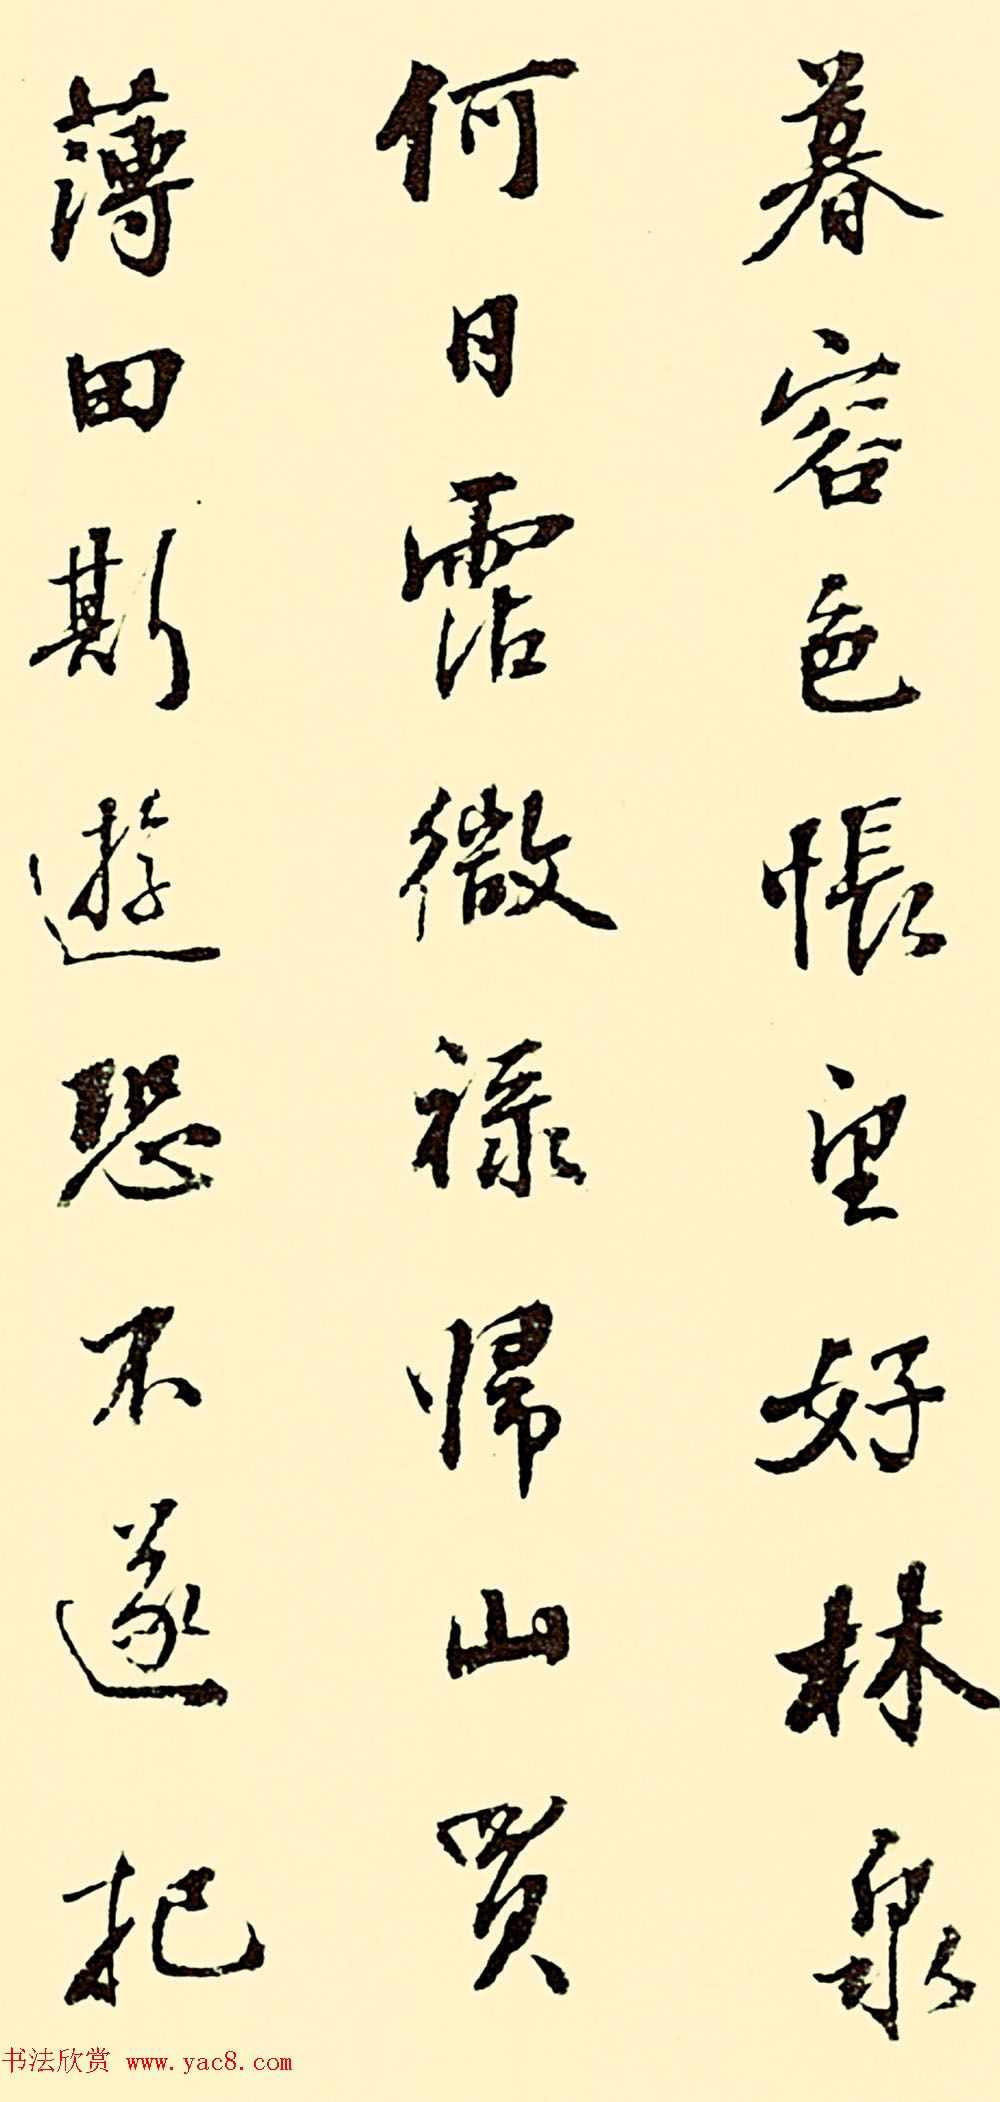 暮容色悵望好林泉
何日霑微祿歸山買
薄田斯遊恐不遂把
书法欣赏 www.yac8.com